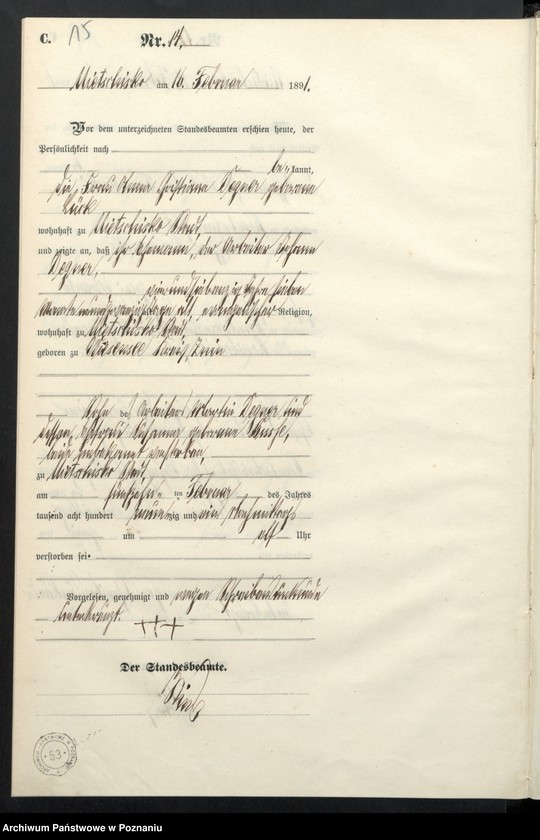 C. 15
Nr. 14.
Mietschisko am 16. Februar 1891.
Vor dem unterzeichneten Standesbeamten erschien heute, der
Persönlichkeit nach
bekannt,
die Frau Anna Christiane Degner geborene
Lück
wohnhaft zu Mietschisko Stadt,
und zeigte an, daß ihr Ehemann, der Arbeiter Johann
Degner,
einundsiebenzig Jahre sieben
Monate alt, evangelischer Religion,
wohnhaft zu Mietschisko Stadt,
geboren zu Kreis Znin
Sohn des Arbeiters Martin Degner und
dessen Ehefrau Susanna geborene
beide verstorben,
zu Mietschisko Stadt,
am fünfzehn ten Februar des Jahres
tausend acht hundert neunzig und ein Nachmittags
um elf Uhr
verstorben sei.
Vorgelesen, genehmigt und wegen Schreibensunkunde
unterkreuzt.
+++
Der Standesbeamte.
ARCHIWUM PAŃSTWOWE W POZNANIU
53
Archiwum Państwowe w Poznaniu